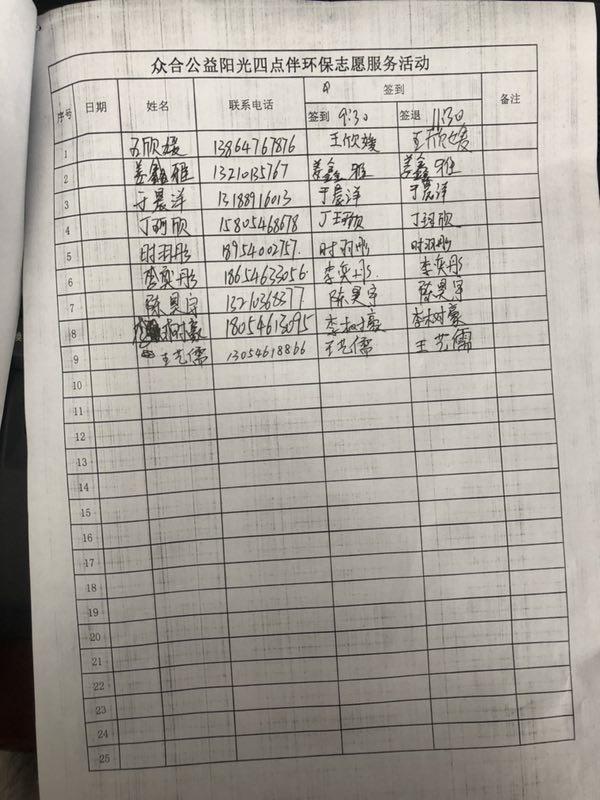 众合公益阳光四点伴环保志愿服务活动
序号 日期 姓名 联系电话 签到 备注
签到 9:30 签退 11:30
1 王欣媛 13864767876 王欣媛 王欣媛
2 姜鑫雅 13210135767 姜鑫雅 姜鑫雅
3 于晨洋 13188916013 于晨洋 于晨洋
4 丁珂欣 15805468678 丁珂欣 丁珂欣
5 时羽彤 18954002757. 时羽彤 时羽彤
6 李奕彤 18654633056 李奕彤 李奕彤
7 陈昊宇 13210368377 陈昊宇 陈昊宇
8 树豪 18054613095 李树豪 李树豪
9 王艺儒 13054618866 王艺儒 王艺儒
10
11
12
13
14
15
16
17
18
19
20
21
22
23
24
25